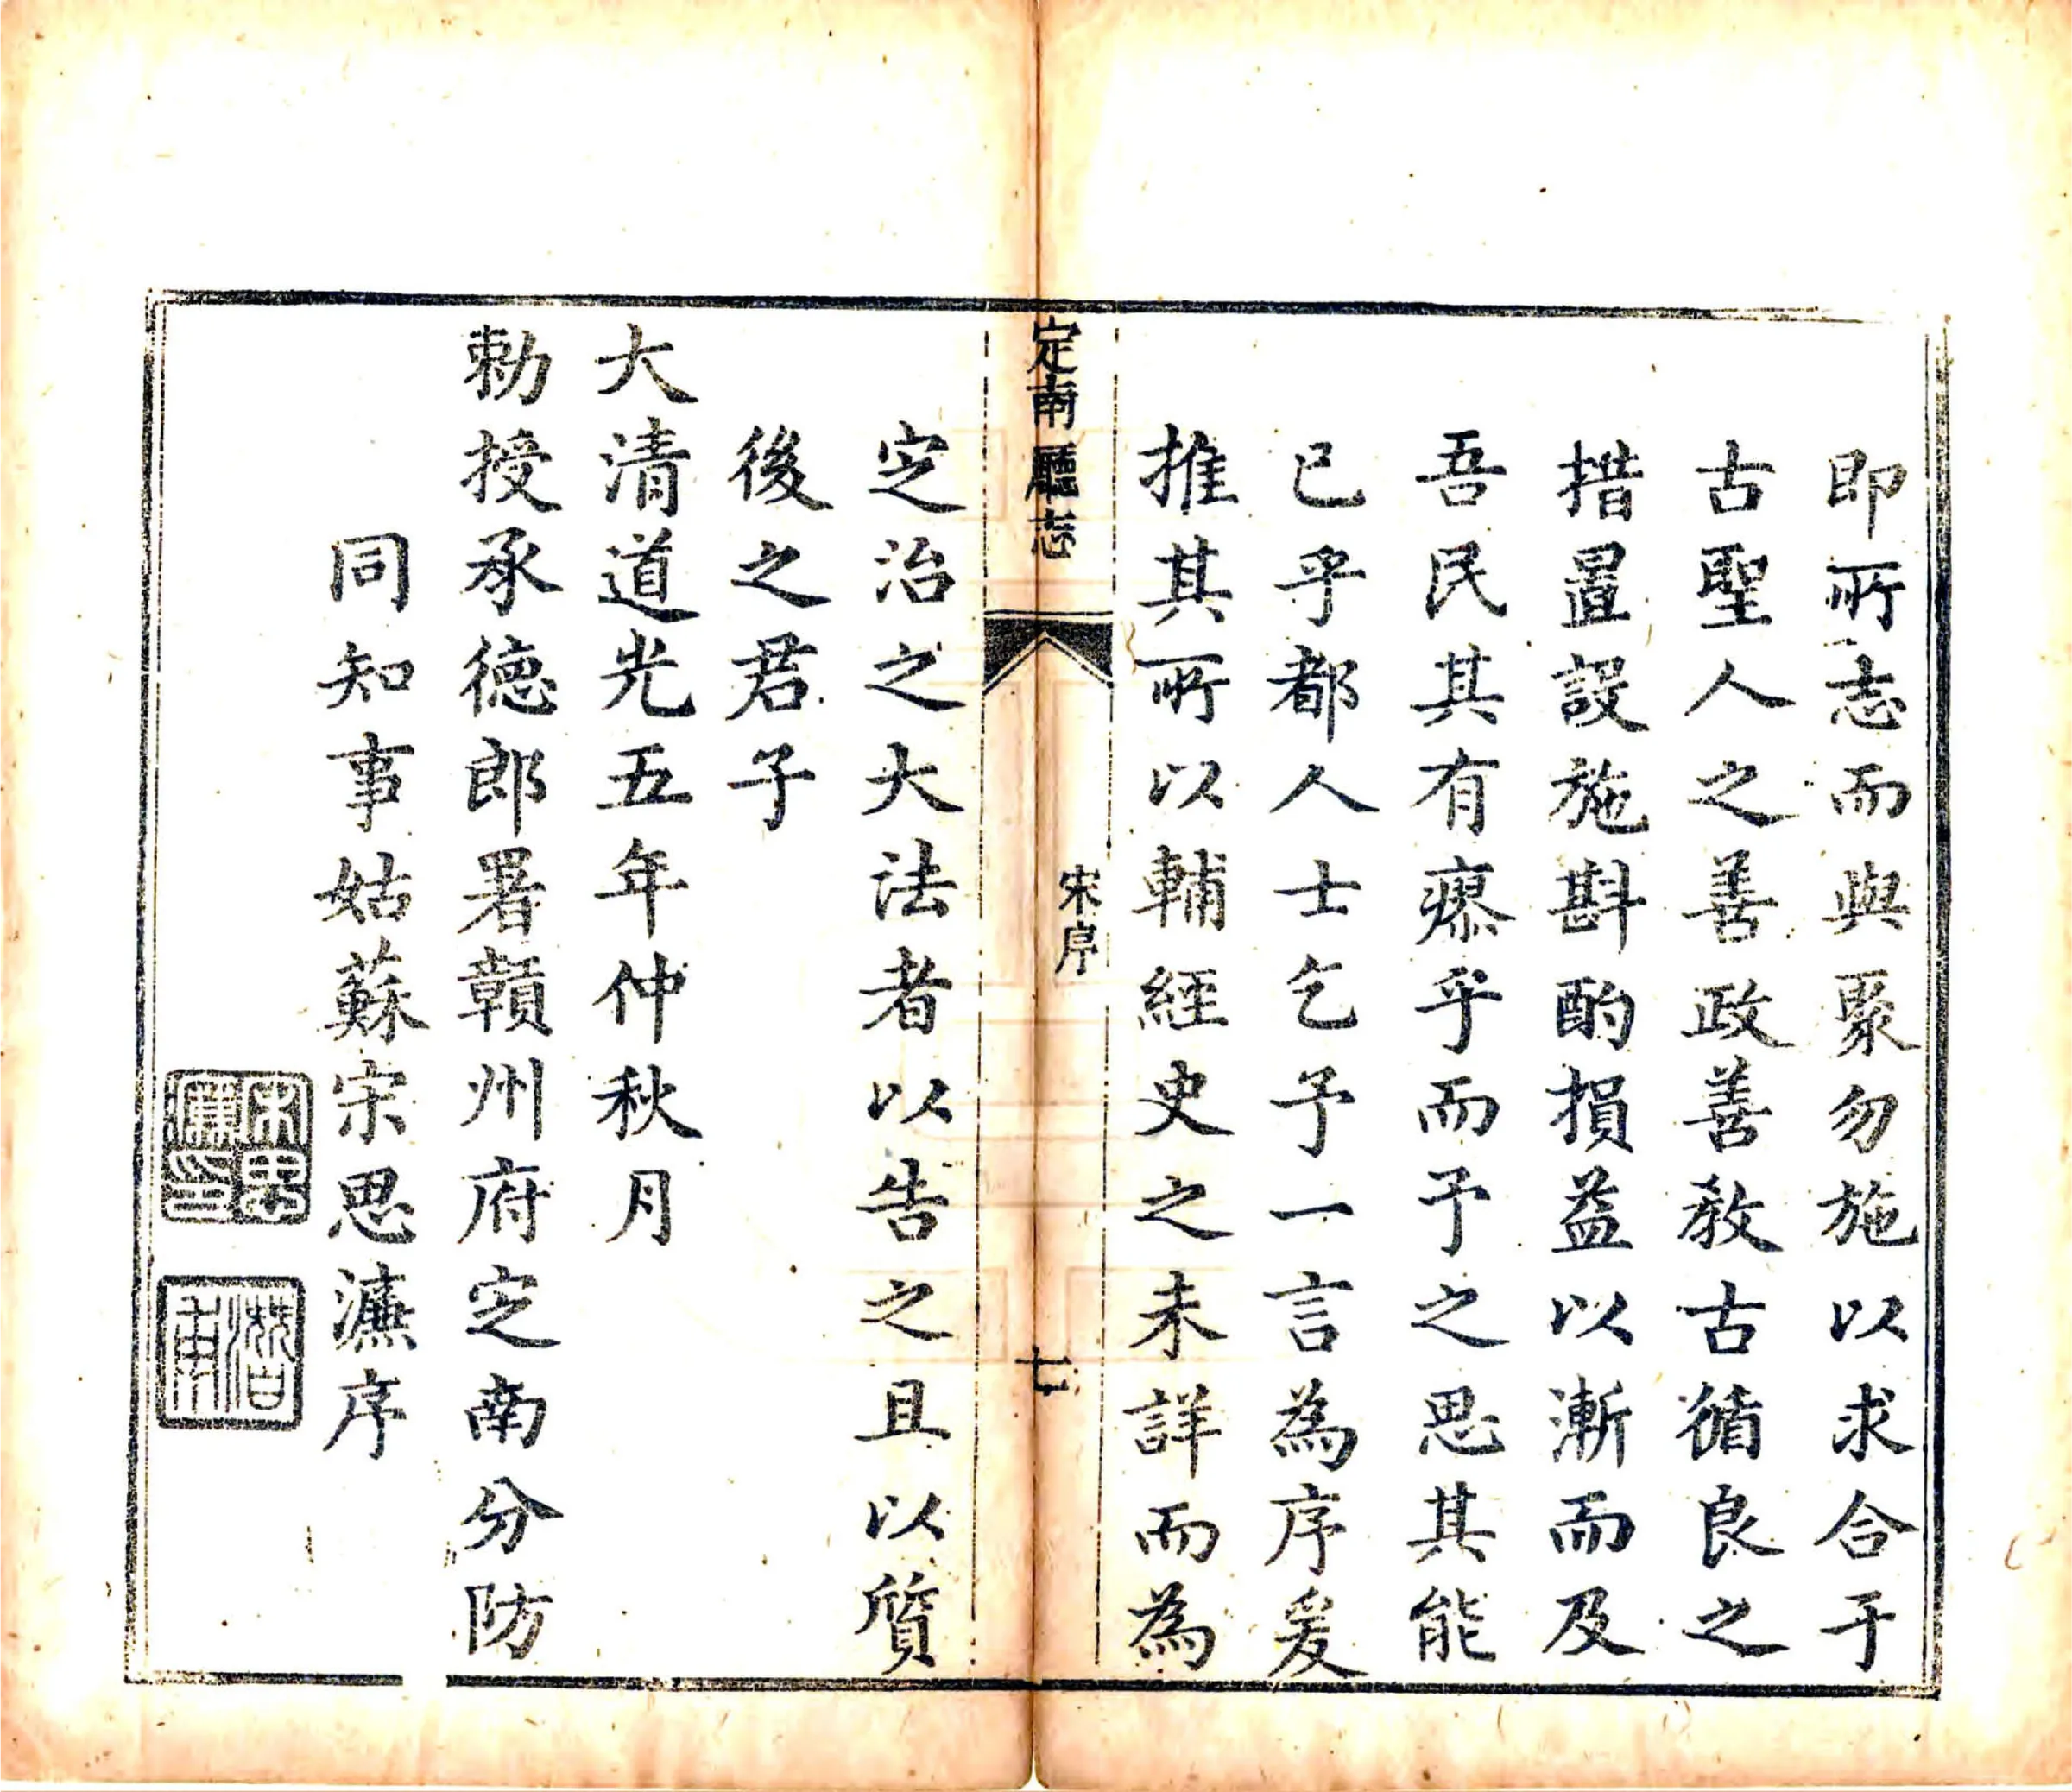 即所志而與聚勿施以求合于
古聖人之善政善教古循良之
措置設施斟酌損益以漸而及
吾民其有瘳乎而予之思其能
已乎都人士乞予一言為序爰
推其所以輔經史之未詳而為
定南廳志
宋序
七
定治之大法者以告之且以質
後之君子
大清道光五年仲秋月
勅授承德郎署贛州府定南分防
同知事姑蘇宋思濂序
宋思濂印